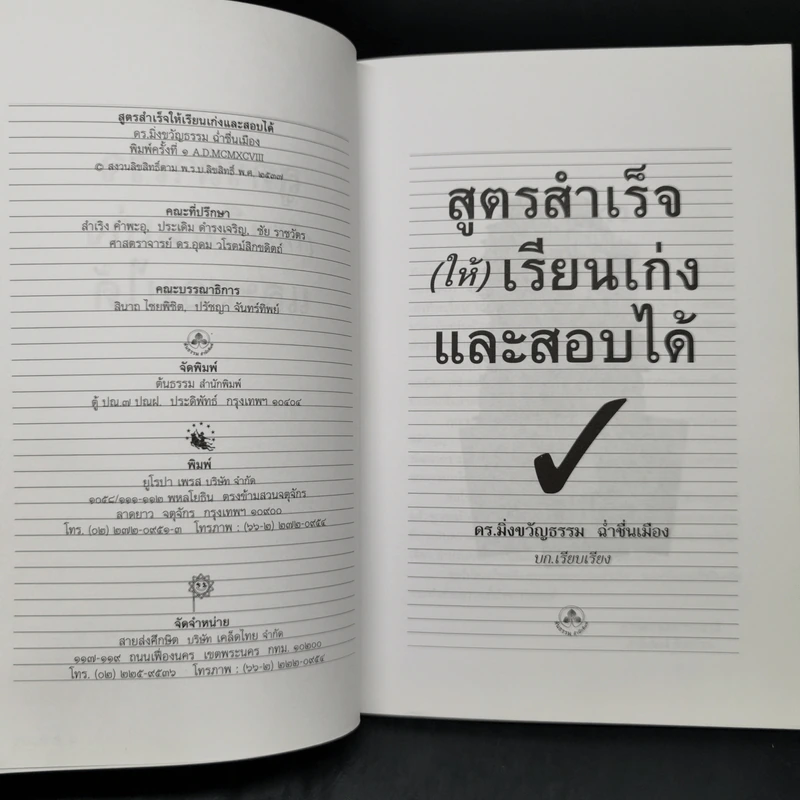 สูตรสำเร็จให้เรียนเก่งและสอบได้
ดร.มิ่งขวัญธรรม ฉ่ำชื่นเมือง
พิมพ์ครั้งที่ ๑ A.D.MCMXCVIII
© สงวนลิขสิทธิ์ตาม พ.ร.บ.ลิขสิทธิ์ พ.ศ. ๒๕๓๗
คณะที่ปรึกษา
สำเริง คำพะอุ, ประเดิม ดำรงเจริญ, ชัย ราชวัตร
ศาสตราจารย์ ดร.อุดม วโรตม์สิกขดิตถ์
คณะบรรณาธิการ
สินาถ ไชยพิชิต, ปรัชญา จันทร์ทิพย์
จัดพิมพ์
ต้นธรรม สำนักพิมพ์
ตู้ ปณ.๗ ปณฝ. ประดิพัทธ์ กรุงเทพฯ ๑๐๔๐๔
พิมพ์
ยูโรปา เพรส บริษัท จำกัด
๑๐๕๘/๑๑๑-๑๑๒ พหลโยธิน ตรงข้ามสวนจตุจักร
ลาดยาว จตุจักร กรุงเทพฯ ๑๐๙๐๐
โทร. (๐๒) ๒๗๒-๐๙๕๑-๓ โทรภาพ : (๖๖-๒) ๒๗๒-๐๙๕๔
จัดจำหน่าย
สายส่งศึกษิต บริษัท เคล็ดไทย จำกัด
๑๑๗-๑๑๙ ถนนเฟื่องนคร เขตพระนคร กทม. ๑๐๒๐๐
โทร. (๐๒) ๒๒๕-๙๕๓๖ โทรภาพ : (๖๖-๒) ๒๒๒-๐๙๕๔
สูตรสำเร็จ
(ให้) เรียนเก่ง
และสอบได้
ดร.มิ่งขวัญธรรม ฉ่ำชื่นเมือง
บก.เรียบเรียง